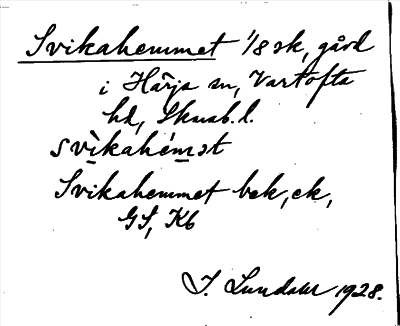 Svikahemmet 1/8 sk, gård
i Härja sn, Vartofta
hd, Skarab. l.
svìkahémət
Svikahemmet bek, ek,
GS, Kb
J. Lundahl 1928.